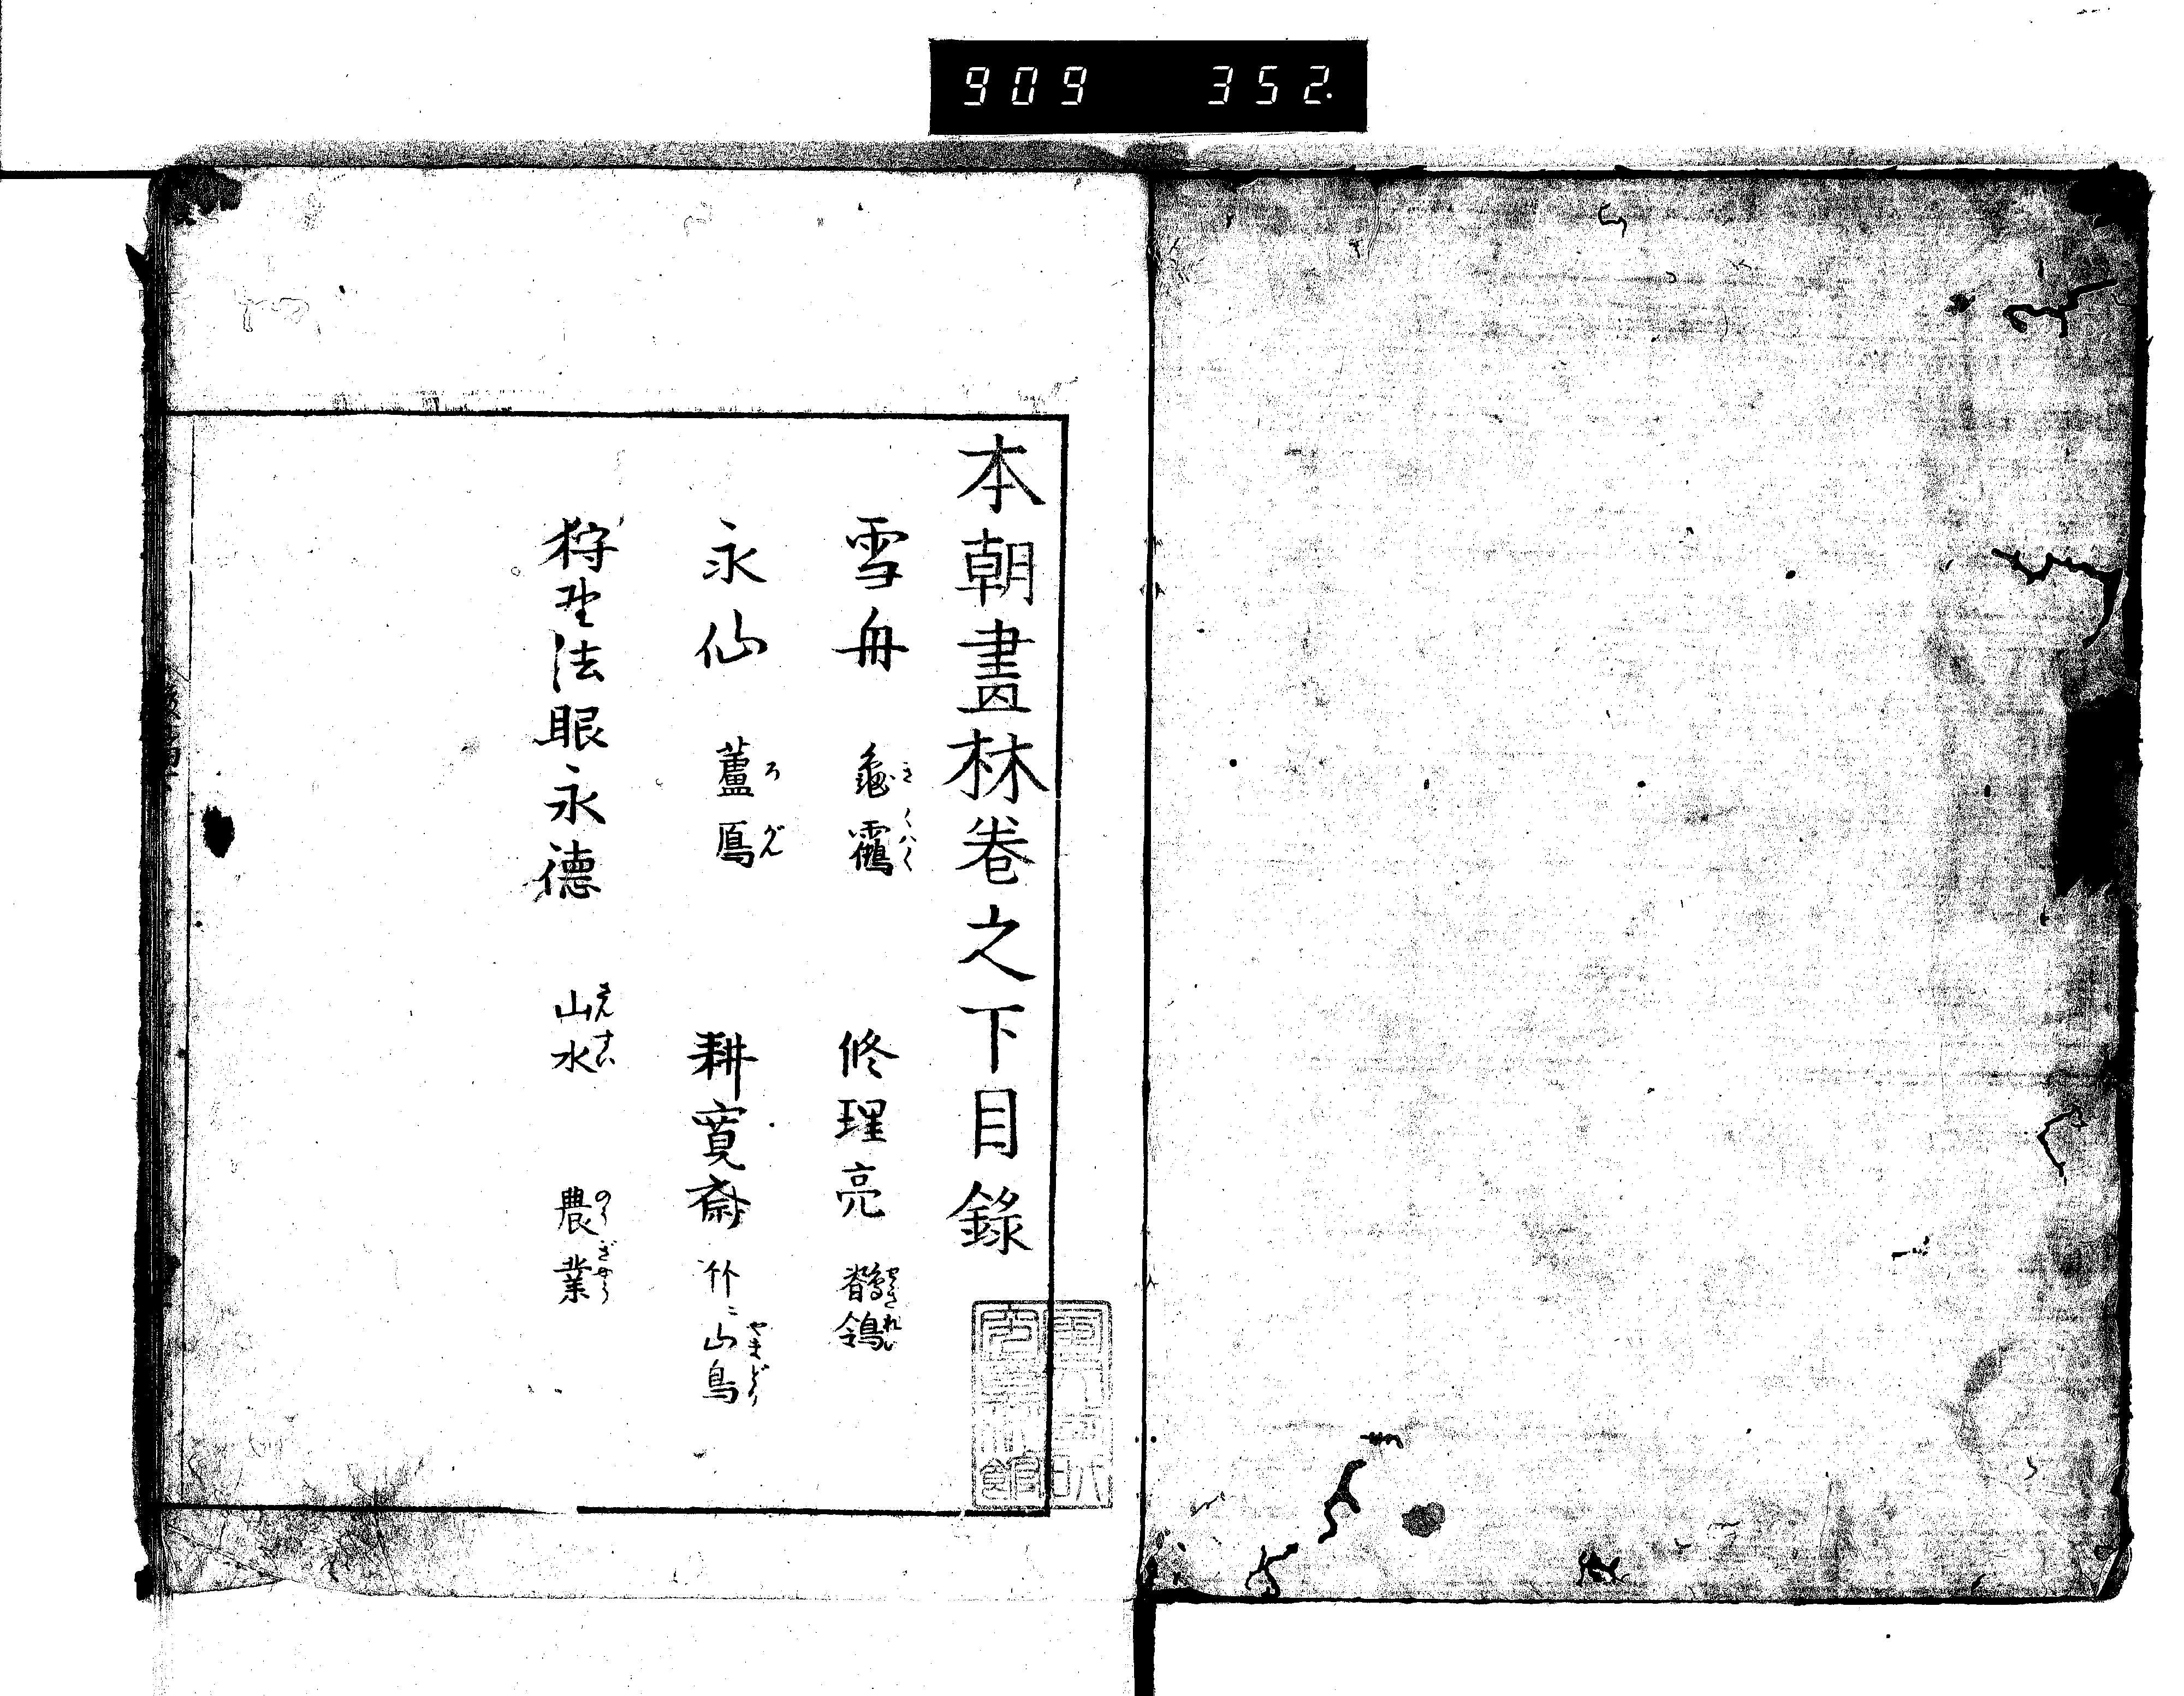 909 352
本朝畫林卷之下目錄
雪舟 龜靏 修理亮 鶺鴒
永仙 蘆鳫 耕寛斎 竹ニ山鳥
狩野法眼永德 山水 農業